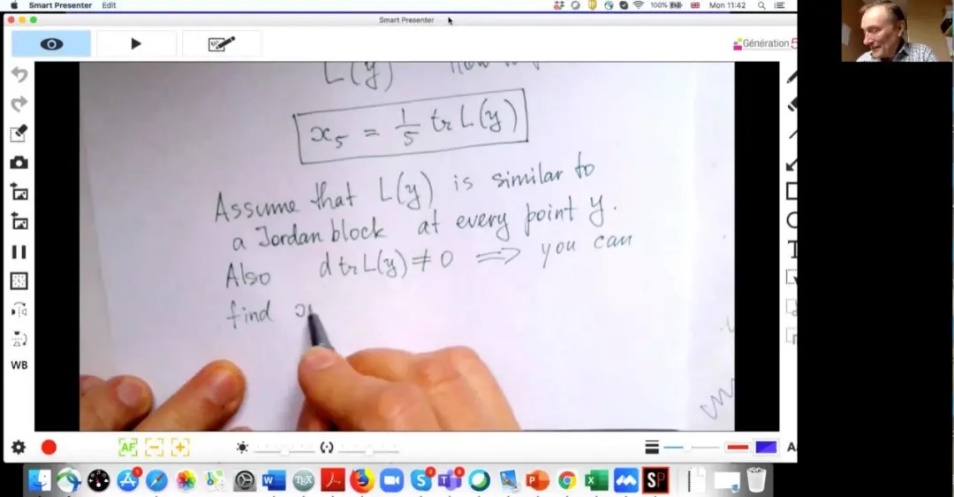 Smart Presenter Edit
100% Mon 11:42
Smart Presenter
Génération 5
L(y)
x₅ = 1/5 tr L(y)
Assume that L(y) is similar to
a Jordan block at every point y.
Also d tr L(y) ≠ 0 ⇒ you can
find
T
WB
AF
A